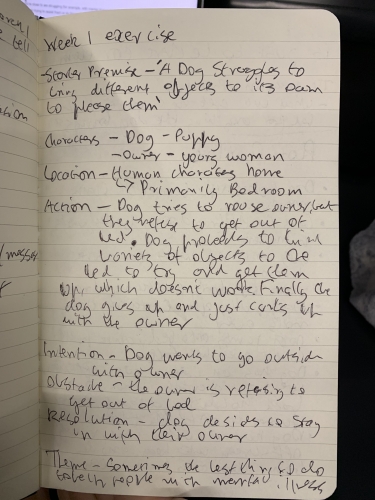 Week 1 exercise
Starter Premise - 'A Dog Struggles to
bring different objects to its owner
to please them'
Characters - Dog - Puppy
- owner - young woman
Location - Human characters home
↳ Primarily Bedroom
Action - Dog tries to rouse owner but
they refuse to get out of
bed. Dog proceeds to
variety of objects to the
bed to try and get them
up which doesn't work. Finally the
dog gives up and just curls up
with the owner
Intention - Dog wants to go outside
with owner
Obstacle - the owner is refusing to
get out of bed
Resolution - dog desides to stay
in with their owner
Theme - Sometimes the best thing to do
people with mental illness